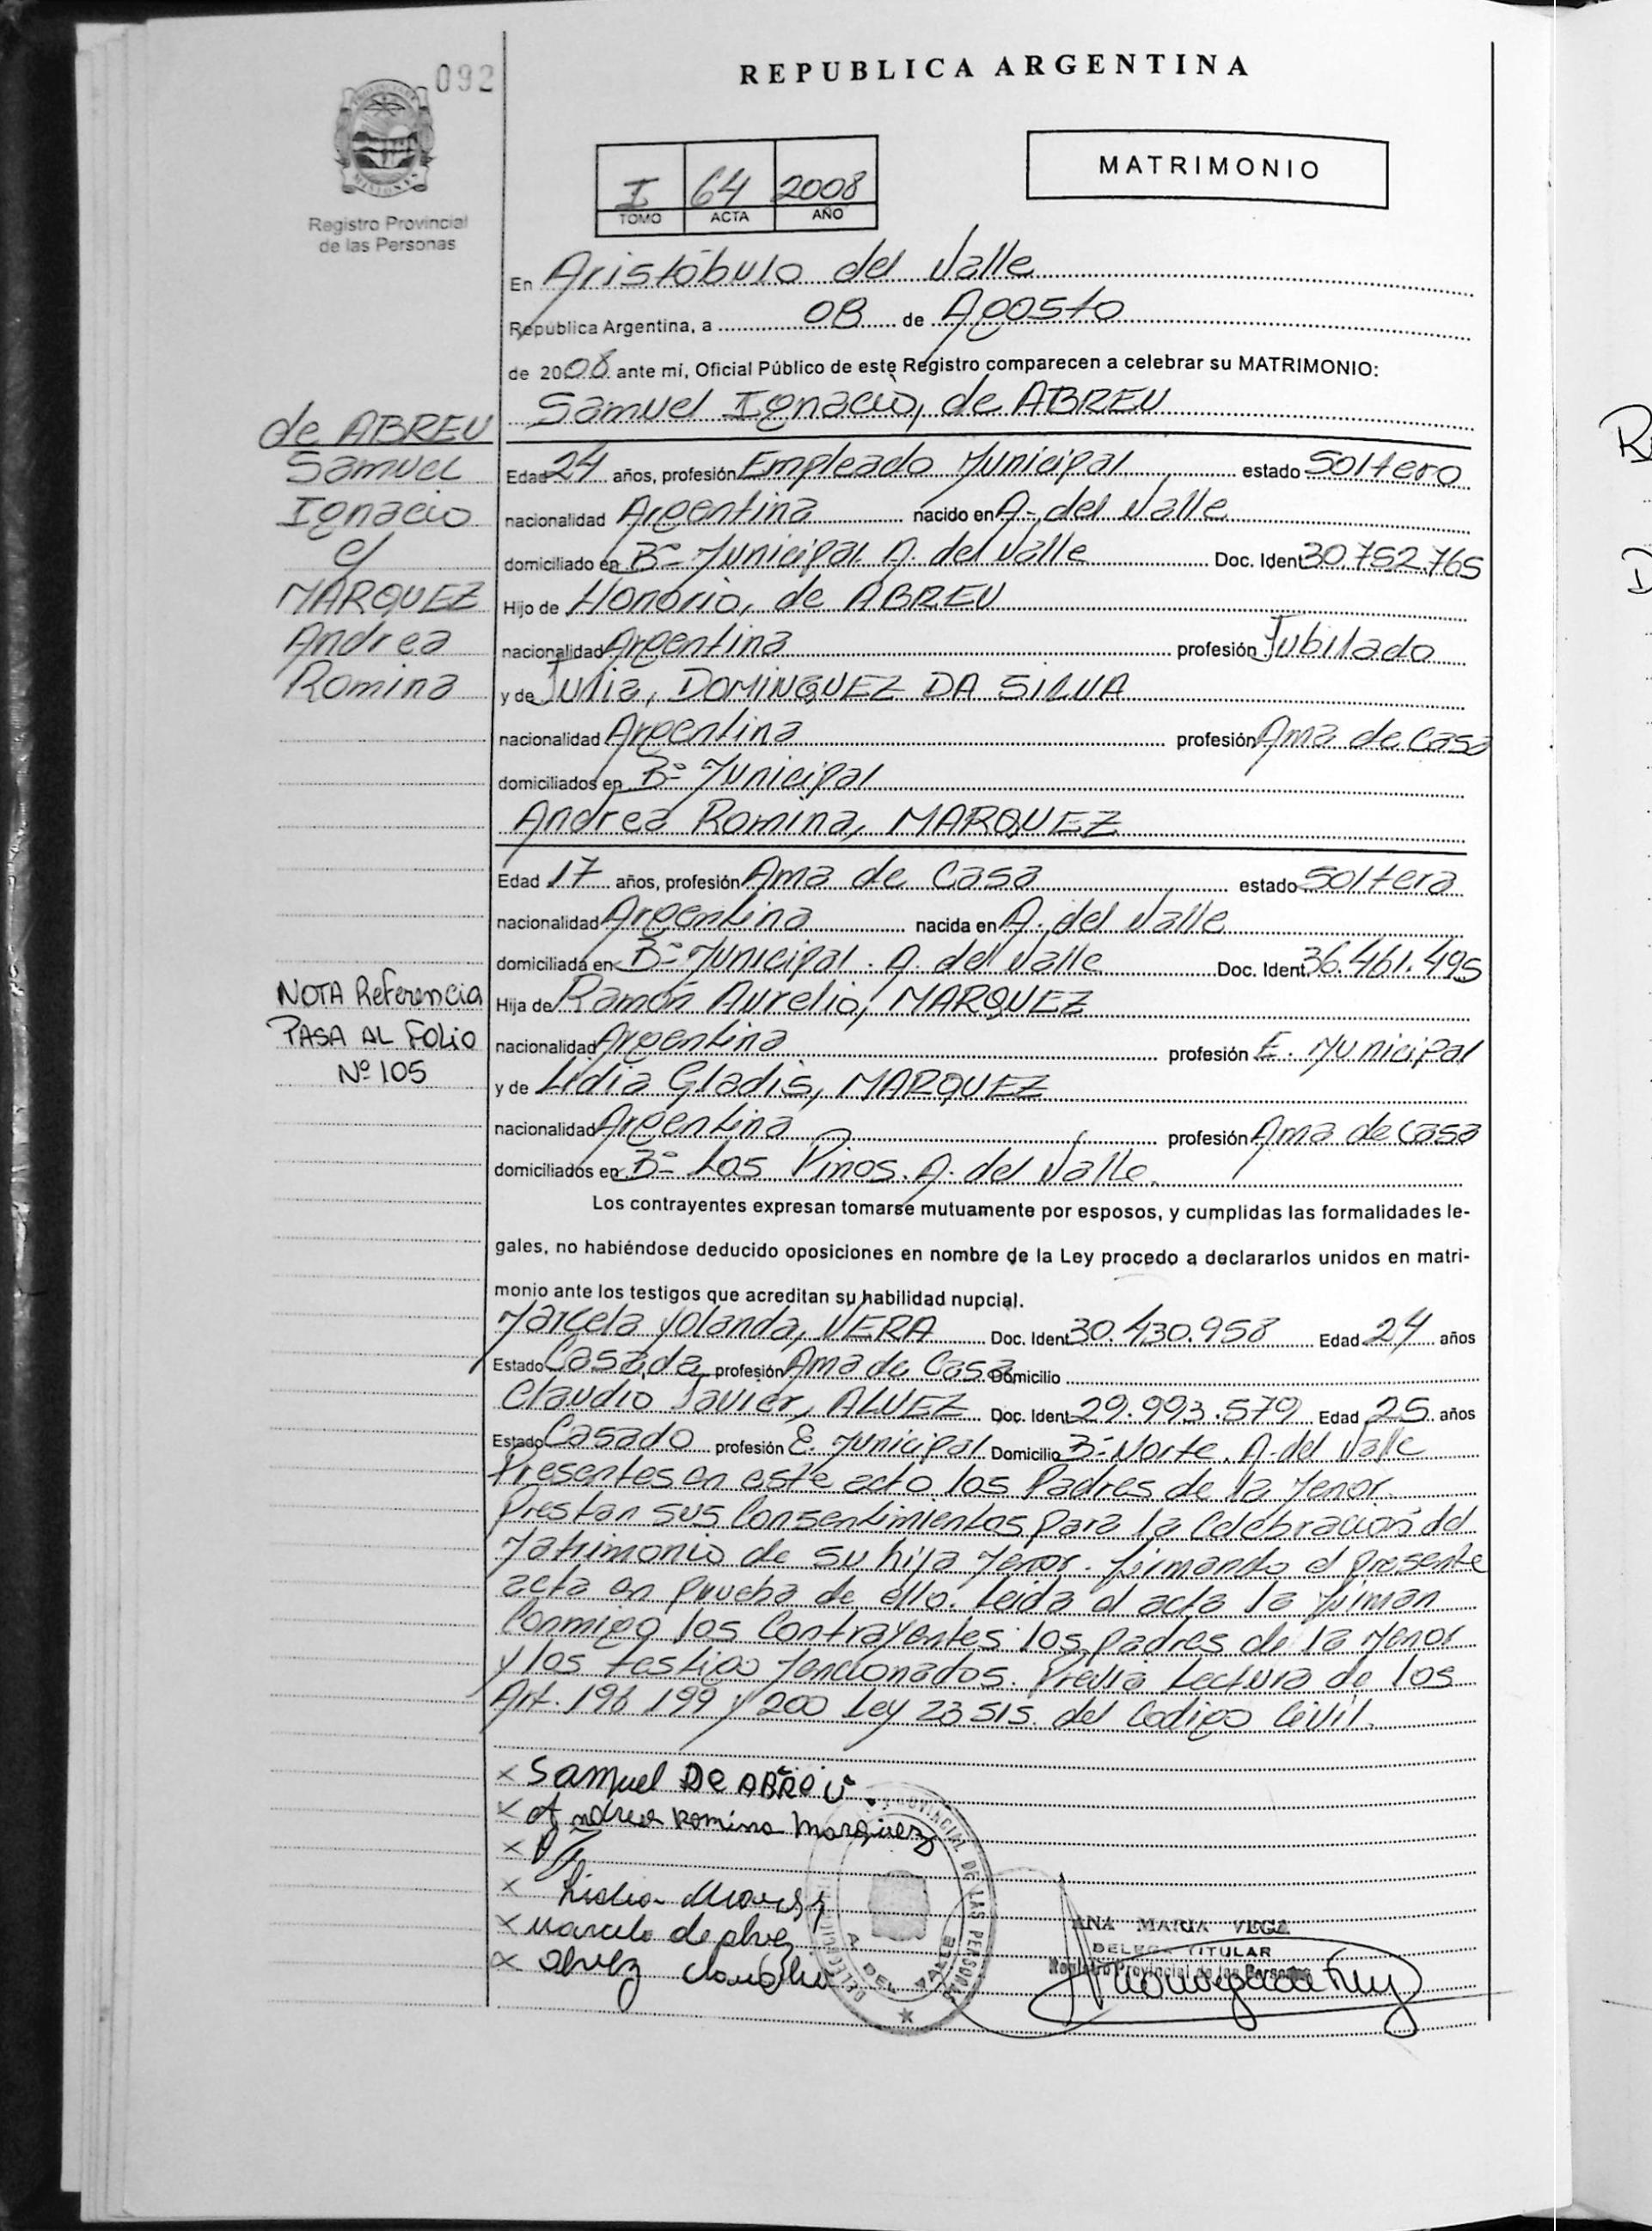 092
REPUBLICA ARGENTINA
MATRIMONIO
I 64 2008
TOMO ACTA AÑO
Registro Provincial
de las Personas
En Aristóbulo del Valle
Republica Argentina, a 08 de Agosto
de 2008 ante mí, Oficial Público de este Registro comparecen a celebrar su MATRIMONIO:
Samuel Ignacio, de ABREU
de ABREU
Samuel
Ignacio
y
MARQUEZ
Andrea
Romina
Edad 24 años, profesión Empleado Municipal estado Soltero
nacionalidad Argentina nacido en A. del Valle
domiciliado en Bº Municipal. A. del Valle Doc. Ident. 30.752.765
Hijo de Honorio, de ABREU
nacionalidad Argentina profesión Jubilado
y de Julia, DOMINGUEZ DA SILVA
nacionalidad Argentina profesión Ama de Casa
domiciliados en Bº Municipal
Andrea Romina, MARQUEZ
Edad 17 años, profesión Ama de Casa estado Soltera
nacionalidad Argentina nacida en A. del Valle
domiciliada en Bº Municipal. A. del Valle Doc. Ident. 36.461.495
NOTA Referencia
PASA AL FOLIO
Nº 105
Hija de Ramón Aurelio, MARQUEZ
nacionalidad Argentina profesión E. Municipal
y de Lidia Gladis, MARQUEZ
nacionalidad Argentina profesión Ama de Casa
domiciliados en Bº Los Pinos. A. del Valle.
Los contrayentes expresan tomarse mutuamente por esposos, y cumplidas las formalidades le-
gales, no habiéndose deducido oposiciones en nombre de la Ley procedo a declararlos unidos en matri-
monio ante los testigos que acreditan su habilidad nupcial.
Marcela Yolanda, VERA Doc. Ident. 30.430.958 Edad 24 años
Estado Casada profesión Ama de Casa Domicilio
Claudio Javier, ALVEZ Doc. Ident. 29.993.579 Edad 25 años
Estado Casado profesión E. Municipal Domicilio Bº Norte. A. del Valle
Presentes en este acto los Padres de la Menor.
Prestan sus Consentimientos para la Celebración del
Matrimonio de su hija Menor. firmando el presente
acta en prueba de ello. Leida el acta la firman
Conmigo los Contrayentes los padres de la Menor
y los testigos Mencionados. Previa Lectura de los
Art. 198 199 y 200 Ley 23515. del Codigo Civil.
x Samuel DE ABREU
x Andrea Romina Marquez
x
x Lidia
x Marcela de alvez
x alvez Claudio
ANA MARIA VEGA
TITULAR
Registro Provincial de las Personas
PROVINCIAL DE LAS PERSONAS
A. DEL VALLE